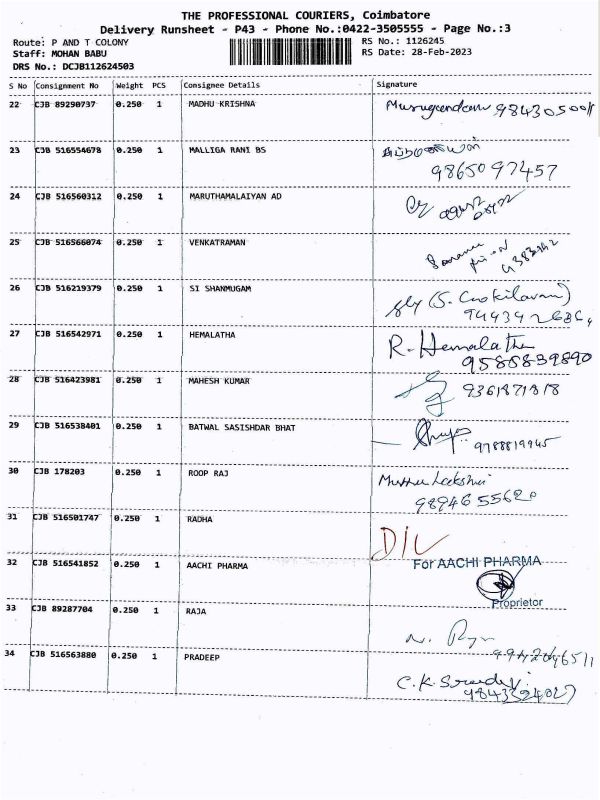 THE PROFESSIONAL COURIERS, Coimbatore
Delivery Runsheet - P43 - Phone No.:0422-3505555 - Page No.:3
Route: P AND T COLONY
RS No.: 1126245
Staff: MOHAN BABU
RS Date: 28-Feb-2023
DRS No.: DCJB112624503
S No Consignment No Weight PCS Consignee Details Signature
22 CJB 89290737 0.250 1 MADHU KRISHNA
23 CJB 516554678 0.250 1 MALLIGA RANI BS
9865097457
24 CJB 516560312 0.250 1 MARUTHAMALAIYAN AD
25 CJB 516566074 0.250 1 VENKATRAMAN
26 CJB 516219379 0.250 1 SI SHANMUGAM
27 CJB 516542971 0.250 1 HEMALATHA R. Hemalatha
9585839890
28 CJB 516423981 0.250 1 MAHESH KUMAR 9361871818
29 CJB 516538401 0.250 1 BATWAL SASISHDAR BHAT
9788819945
30 CJB 178203 0.250 1 ROOP RAJ
9894655620
31 CJB 516501747 0.250 1 RADHA
32 CJB 516541852 0.250 1 AACHI PHARMA For AACHI PHARMA
Proprietor
33 CJB 89287704 0.250 1 RAJA
34 CJB 516563880 0.250 1 PRADEEP
C.K.